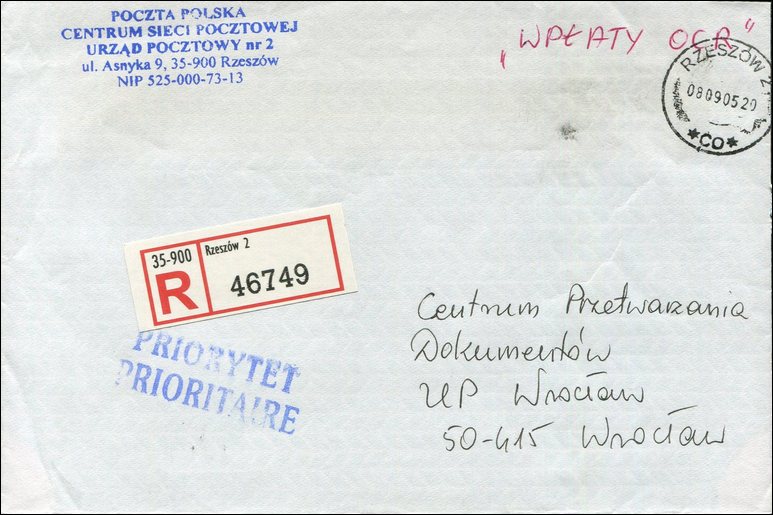 POCZTA POLSKA
CENTRUM SIECI POCZTOWEJ
URZĄD POCZTOWY nr 2
ul. Asnyka 9, 35-900 Rzeszów
NIP 525-000-73-13
„WPŁATY OCR"
RZESZÓW 2
08090520
*CO*
35-900
Rzeszów 2
R
46749
PRIORYTET
PRIORITAIRE
Centrum Przetwarzania
Dokumentów
UP Wrocław
50-415 Wrocław